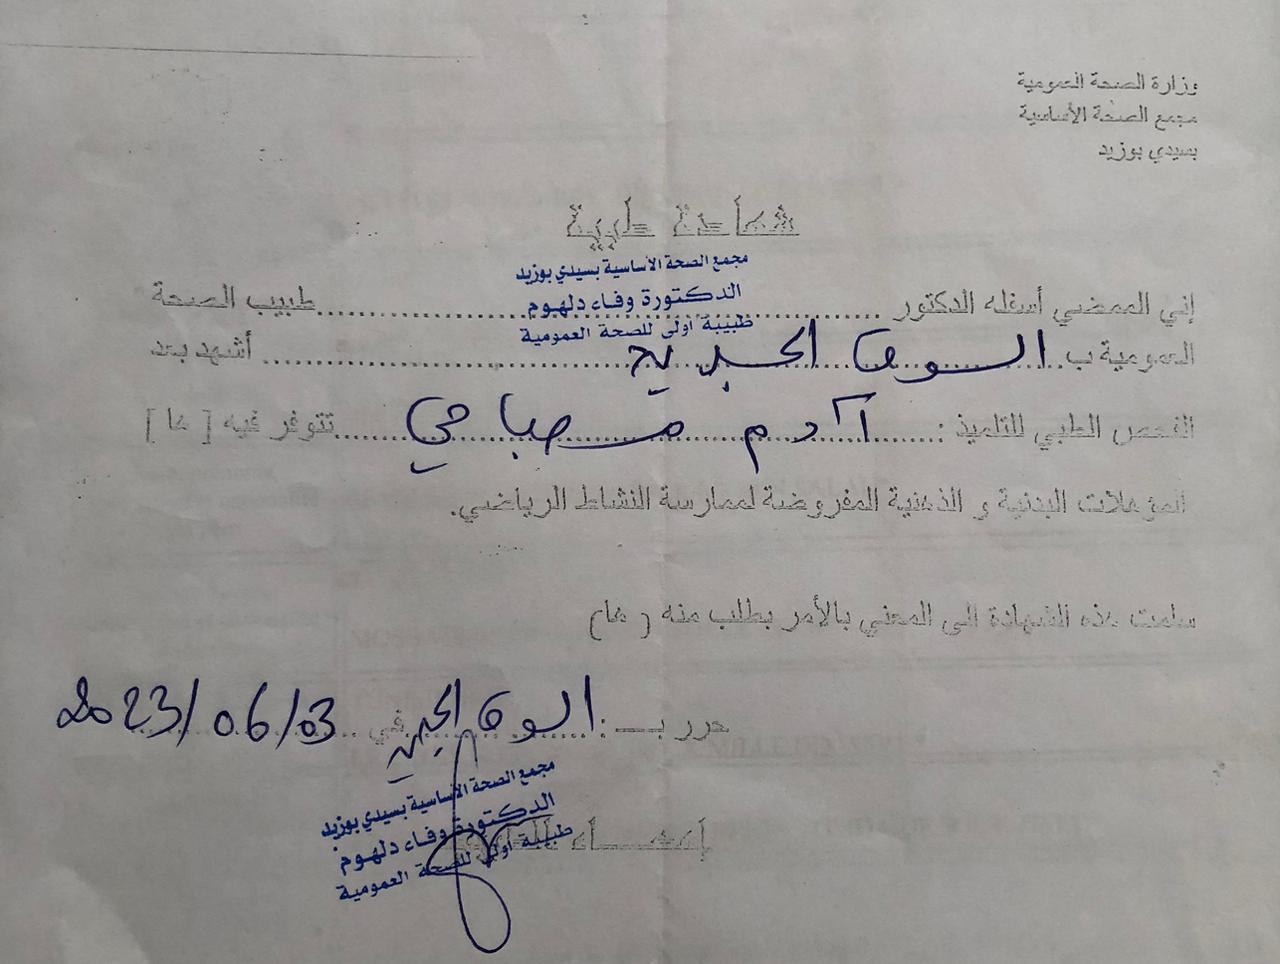 وزارة الصحة العمومية
مجمع الصحة الأساسية
بسيدي بوزيد
شهادة طبية
مجمع الصحة الأساسية بسيدي بوزيد
الدكتورة وفاء دلهوم
طبيبة أولى للصحة العمومية
إني الممضي أسفله الدكتور ........ طبيب الصحة
العمومية ب السوق الجديد ........ أشهد بعد
الفحص الطبي للتلميذ : آدم مصباحي ........ تتوفر فيه [ ها ]
المؤهلات البدنية و الذهنية المفروضة لممارسة النشاط الرياضي.
سلمت هذه الشهادة الى المعني بالأمر بطلب منه ( ها)
حرر بـ : السوق الجديد في 2023/06/03
إمضاء الطبيب
مجمع الصحة الأساسية بسيدي بوزيد
الدكتورة وفاء دلهوم
طبيبة أولى للصحة العمومية